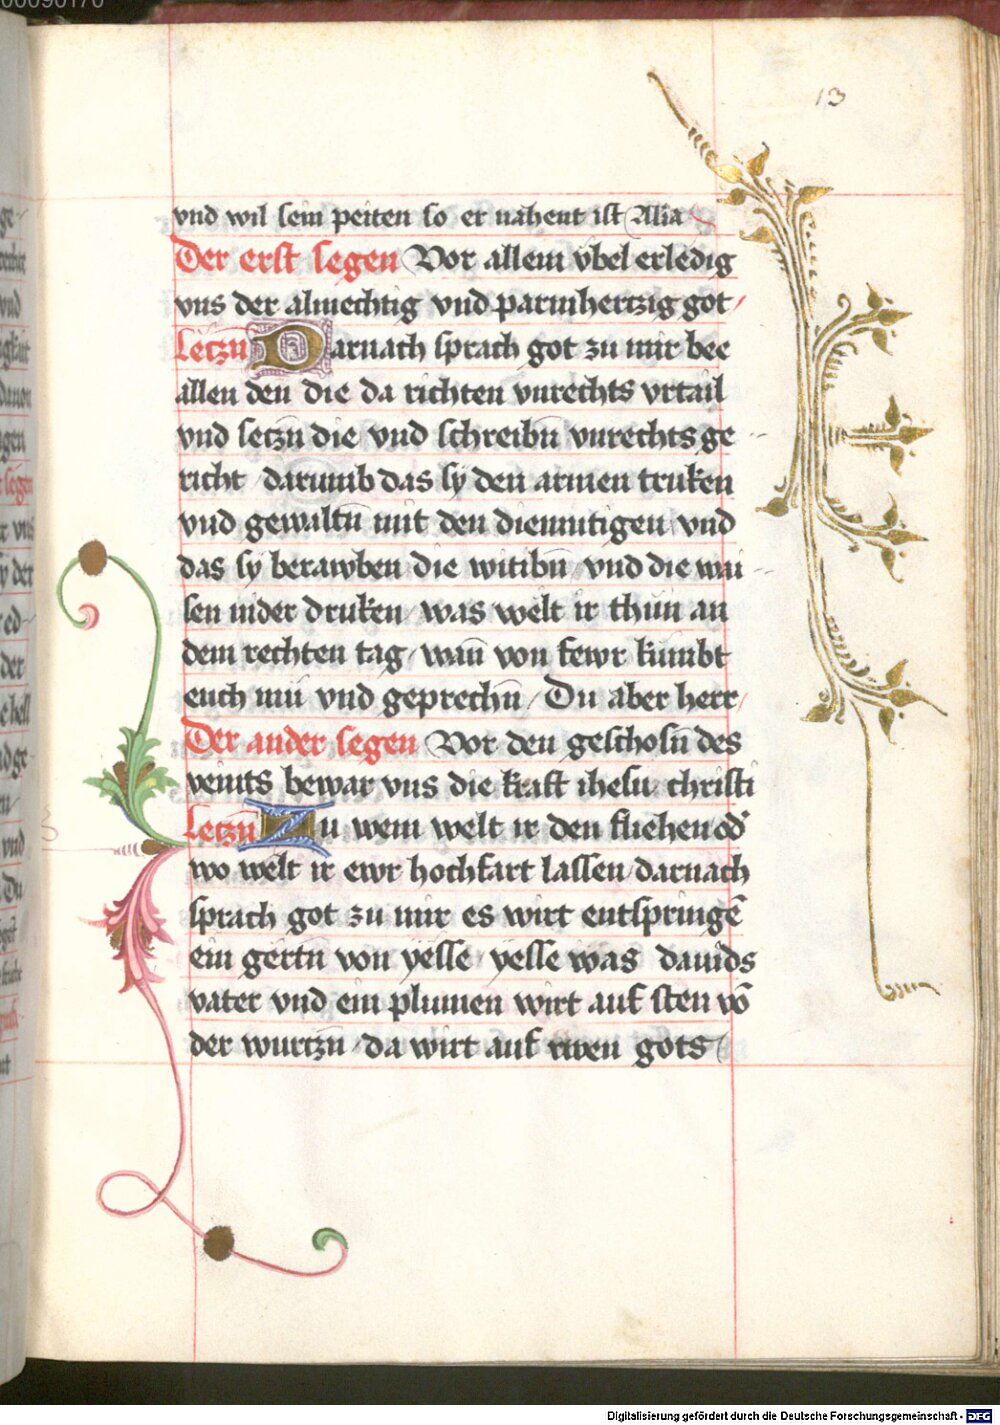 13
vnd wil sein peiten so er nahent ist Alia
Der erst segen Vor allem vbel erledig
vns der almechtig vnd parmhertzig got
Leczū Darnach sprach got zu mir bee
allen den die da richten vnrechts vrtail
vnd seczn die vnd schreibn vnrechts ge
richt darumb das sy den armen truken
vnd gewaltn mit den diemutigen vnd
das sy berawben die witibn vnd die wai
sen nider druken was welt ir thun an
dem rechten tag wañ von fewr kumbt
euch mü vnd geprechn Du aber herr
Der ander segen Vor den geschosn des
veints bewar vns die kraft ihesu christi
Leczū Zu wem welt ir den fliehen od'
wo welt ir ewr hochfart lassen darnach
sprach got zu mir es wirt entspringē
ein gertn von yesse yesse was dauids
vater vnd ein plumen wirt auf sten vō
der wurczn da wirt auf rwen gots
Digitalisierung gefördert durch die Deutsche Forschungsgemeinschaft - DFG